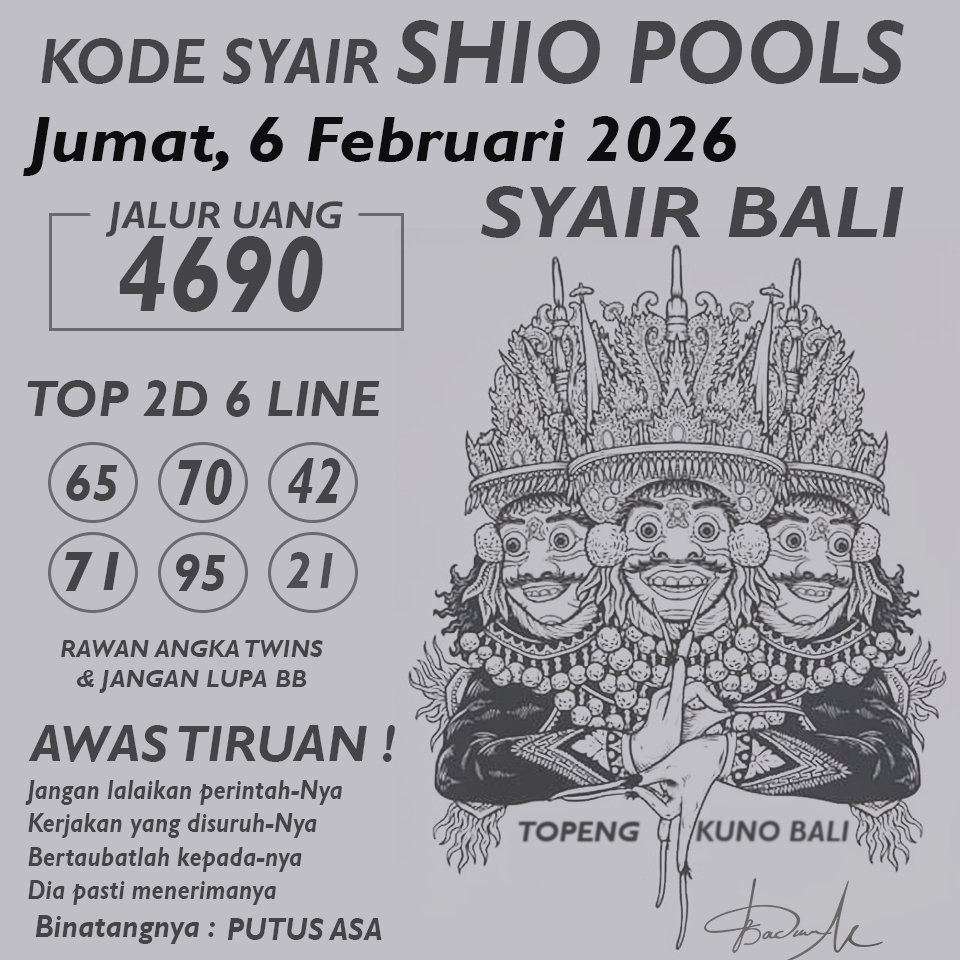 KODE SYAIR SHIO POOLS
Jumat, 6 Februari 2026
SYAIR BALI
JALUR UANG
4690
TOP 2D 6 LINE
65 70 42
71 95 21
RAWAN ANGKA TWINS
& JANGAN LUPA BB
AWAS TIRUAN !
Jangan lalaikan perintah-Nya
Kerjakan yang disuruh-Nya
Bertaubatlah kepada-nya
Dia pasti menerimanya
Binatangnya : PUTUS ASA
TOPENG KUNO BALI